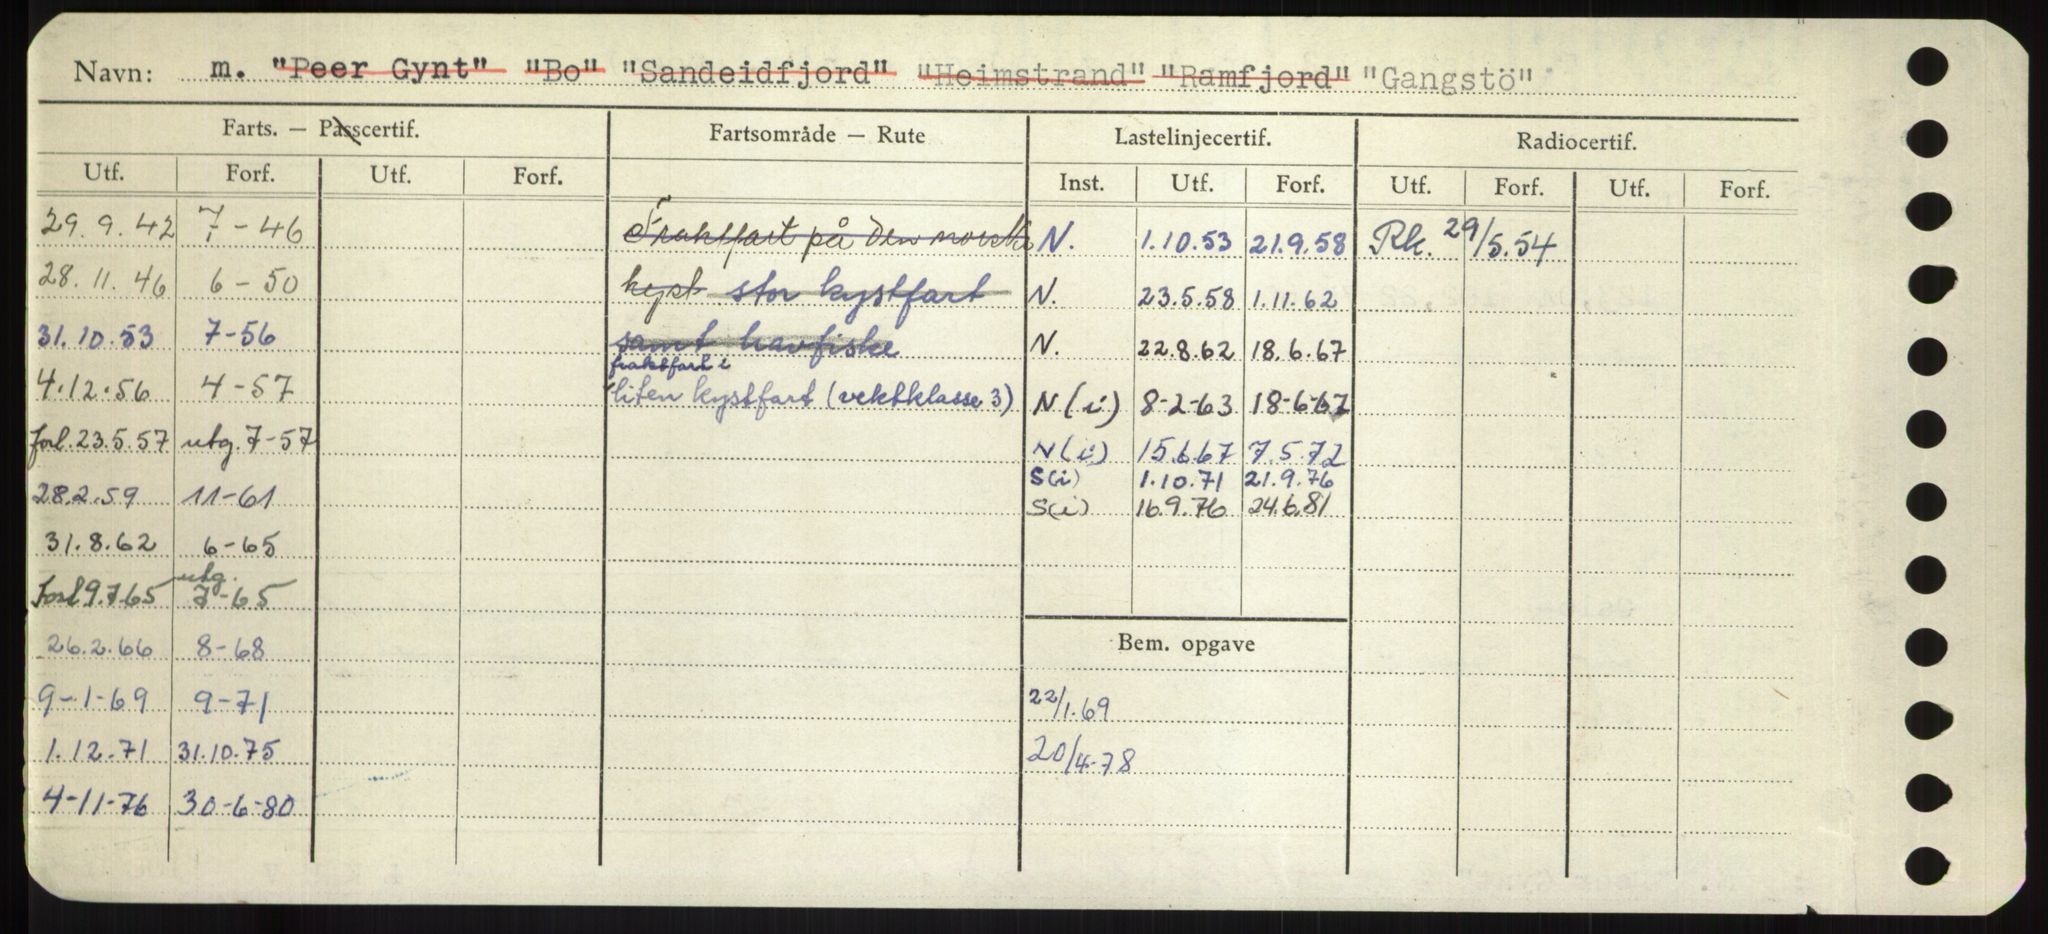 Navn: m. "Peer Gynt" "Bo" "Sandeidfjord" "Heimstrand" "Ramfjord" "Gangstö"
Farts. — Passcertif. Fartsområde — Rute Lastelinjecertif. Radiocertif.
Utf. Forf. Utf. Forf. Inst. Utf. Forf. Utf. Forf. Utf. Forf.
29.9.42 7-46 Fraktfart på den norske N. 1.10.53 21.9.58 Rk. 29/5.54
28.11.46 6-50 kyst stor kystfart N. 23.5.58 1.11.62
31.10.53 7-56 samt havfiske N. 22.8.62 18.6.67
fraktfart i
4.12.56 4-57 liten kystfart (vektklasse 3) N(i) 8-2-63 18-6-67
forl. 23.5.57 utg. 7-57 N(i) 15.6.67 7.5.72
S(i) 1.10.71 21.9.76
28.2.59 11-61 S(i) 16.9.76 24.6.81
31.8.62 6-65
utg.
Forl 9.7.65 7-65
26.2.66 8-68 Bem. opgave
9-1-69 9-71 22/1.69
1.12.71 31.10.75 20/4-78
4-11-76 30-6-80